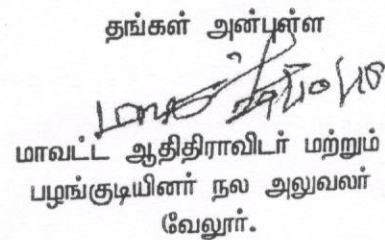 தங்கள் அன்புள்ள
மாவட்ட ஆதிதிராவிடர் மற்றும்
பழங்குடியினர் நல அலுவலர்
வேலூர்.